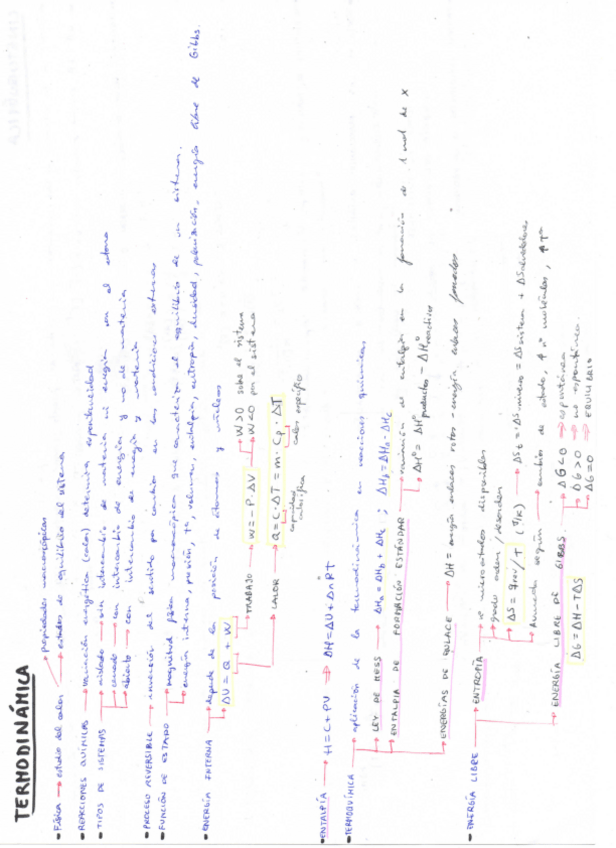 TERMODINÁMICA
• FÍSICA → estudio del calor → propiedades macroscópicas
→ estados de equilibrio del sistema
• REACCIONES QUÍMICAS → variación energética (calor) determina espontaneidad
• TIPOS DE SISTEMAS → aislado → sin intercambio de materia ni energía con el entorno
→ cerrado → con intercambio de energía y no de materia
→ abierto → con intercambio de energía y materia
• PROCESO REVERSIBLE → inversión del sentido por cambio en las condiciones externas
• FUNCIÓN DE ESTADO → magnitud física macroscópica que caracteriza el equilibrio de un sistema.
→ energía interna, presión, Tª, volumen, entalpía, entropía, densidad, polarización, energía libre de Gibbs.
• ENERGÍA INTERNA → depende de la posición de átomos y núcleos
→ ΔU = Q + W
→ TRABAJO → W = -P·ΔV → W>0 sobre el sistema
→ W<0 por el sistema
→ CALOR → Q = C·ΔT = m·Cp·ΔT
capacidad calorífica
calor específico
• ENTALPÍA → H = C + PV → ΔH = ΔU + ΔnRT
• TERMOQUÍMICA → aplicación de la termodinámica en reacciones químicas
→ LEY DE HESS → ΔHA = ΔHB + ΔHC ; ΔHB = ΔHA - ΔHC
→ ENTALPIA DE FORMACIÓN ESTÁNDAR → variación de entalpía en la formación de 1 mol de X
→ ΔH° = ΔH° productos - ΔH° reactivos
→ ENERGÍAS DE ENLACE → ΔH = energía enlaces rotos - energía enlaces formados
• ENERGÍA LIBRE → ENTROPÍA → nº microestados disponibles
→ grado orden/desorden
→ ΔS = qrev/T (J/K) → ΔSt = ΔSuniverso = ΔSsistema + ΔSalrededores
→ Aumenta según → cambios de estado, ↑ nº moléculas, ↑ Tª
→ ENERGÍA LIBRE DE GIBBS → ΔG<0 ⇒ espontánea
ΔG = ΔH - TΔS
→ ΔG>0 ⇒ no espontánea
→ ΔG=0 ⇒ EQUILIBRIO